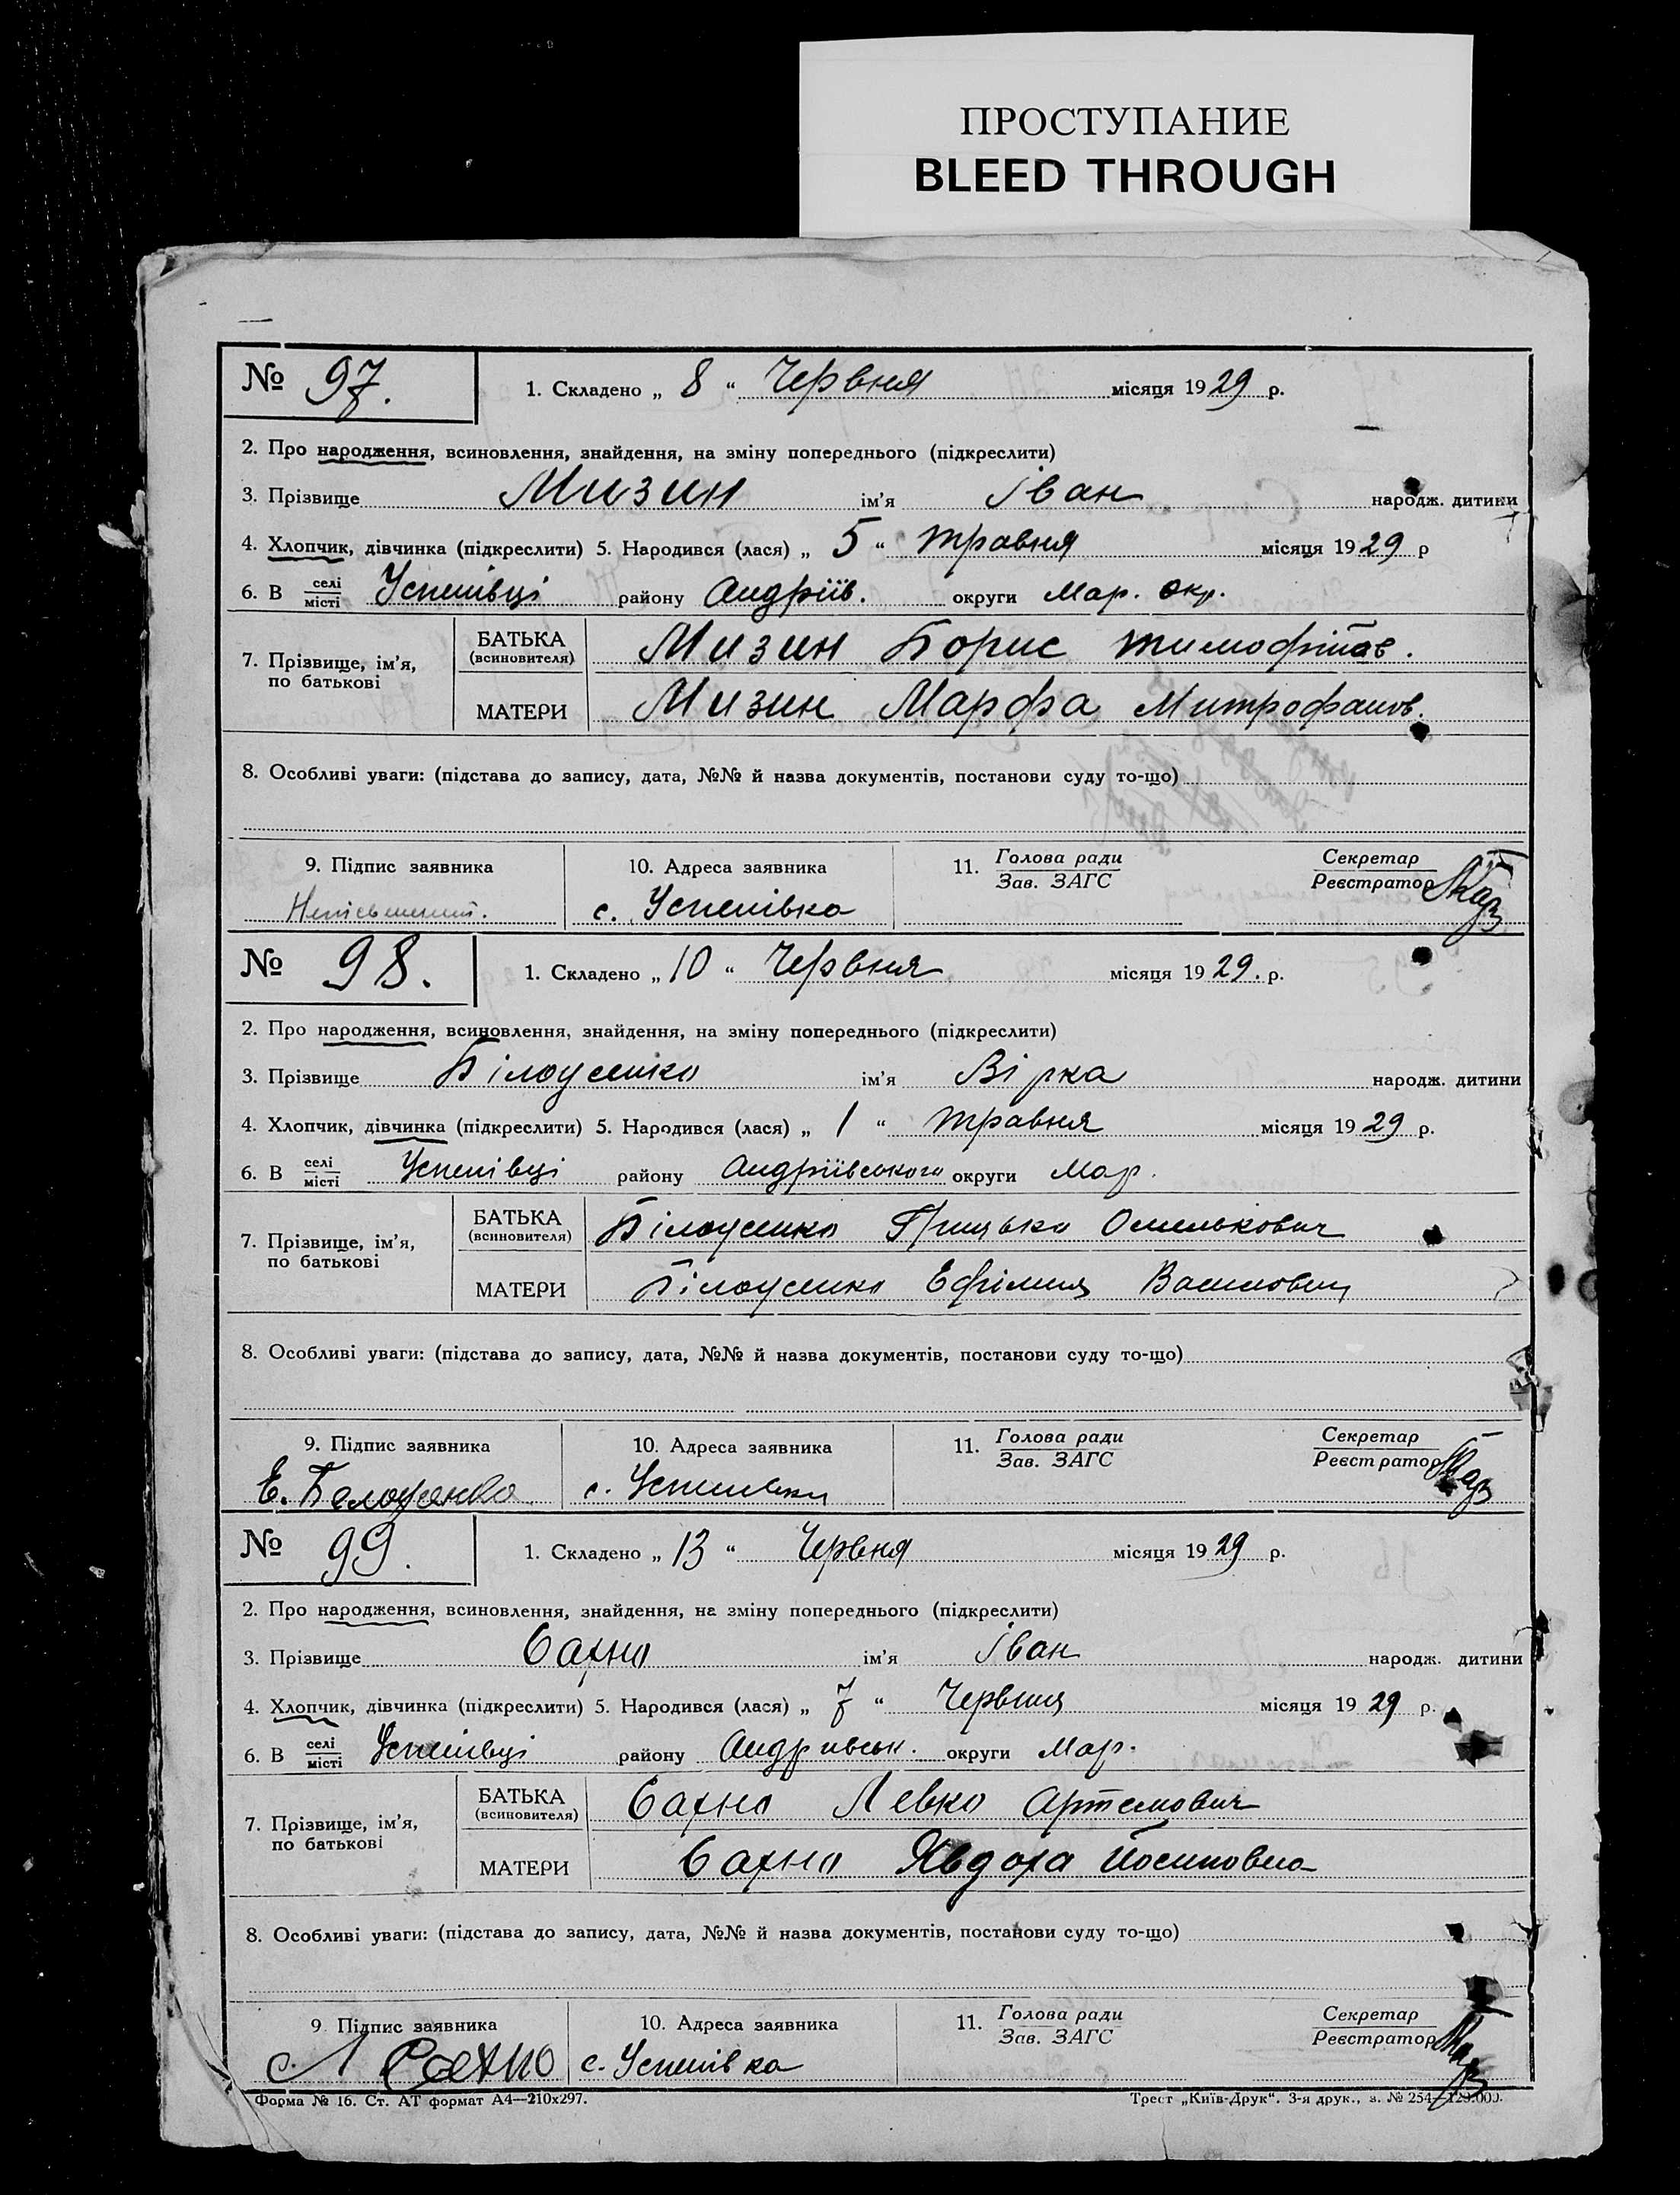 ПРОСТУПАНИЕ
BLEED THROUGH
№ 97. 1. Складено „ 8 “ Червня місяця 1929 р.
2. Про народження, всиновлення, знайдення, на зміну попереднього (підкреслити)
3. Прізвище Мизин ім’я Іван народж. дитини
4. Хлопчик, дівчинка (підкреслити) 5. Народився (лася) „ 5 “ травня місяця 1929 р
6. В селі/місті Успенівці району Андріїв. округи Мар. окр.
7. Прізвище, ім’я, по батькові
БАТЬКА (всиновителя) Мизин Борис Тимофіїв.
МАТЕРИ Мизин Марфа Митрофанов.
8. Особливі уваги: (підстава до запису, дата, №№ й назва документів, постанови суду то-що)
9. Підпис заявника 10. Адреса заявника 11. Голова ради/Зав. ЗАГС Секретар/Реєстратор
Неписьменний. с. Успенівка
№ 98. 1. Складено „ 10 “ Червня місяця 1929. р.
2. Про народження, всиновлення, знайдення, на зміну попереднього (підкреслити)
3. Прізвище Білоусенко ім’я Вірка народж. дитини
4. Хлопчик, дівчинка (підкреслити) 5. Народився (лася) „ 1 “ травня місяця 1929 р.
6. В селі/місті Успенівці району Андріївського округи Мар.
7. Прізвище, ім’я, по батькові
БАТЬКА (всиновителя) Білоусенко Грицько Омелькович
МАТЕРИ Білоусенко Ефімия
8. Особливі уваги: (підстава до запису, дата, №№ й назва документів, постанови суду то-що)
9. Підпис заявника 10. Адреса заявника 11. Голова ради/Зав. ЗАГС Секретар/Реєстратор
Е. с. Успенівка
№ 99. 1. Складено „ 13 “ Червня місяця 1929 р.
2. Про народження, всиновлення, знайдення, на зміну попереднього (підкреслити)
3. Прізвище Сахно ім’я Іван народж. дитини
4. Хлопчик, дівчинка (підкреслити) 5. Народився (лася) „ 7 “ Червня місяця 1929 р.
6. В селі/місті Успенівці району Андривськ. округи Мар.
7. Прізвище, ім’я, по батькові
БАТЬКА (всиновителя) Сахно Левко Артемович
МАТЕРИ Сахно Явдоха Йосиповна
8. Особливі уваги: (підстава до запису, дата, №№ й назва документів, постанови суду то-що)
9. Підпис заявника 10. Адреса заявника 11. Голова ради/Зав. ЗАГС Секретар/Реєстратор
Л Сахно с. Успенівка
Форма № 16. Ст. АТ формат А4—210х297. Трест „Київ-Друк“. 3-я друк., з. № 254—123.000.